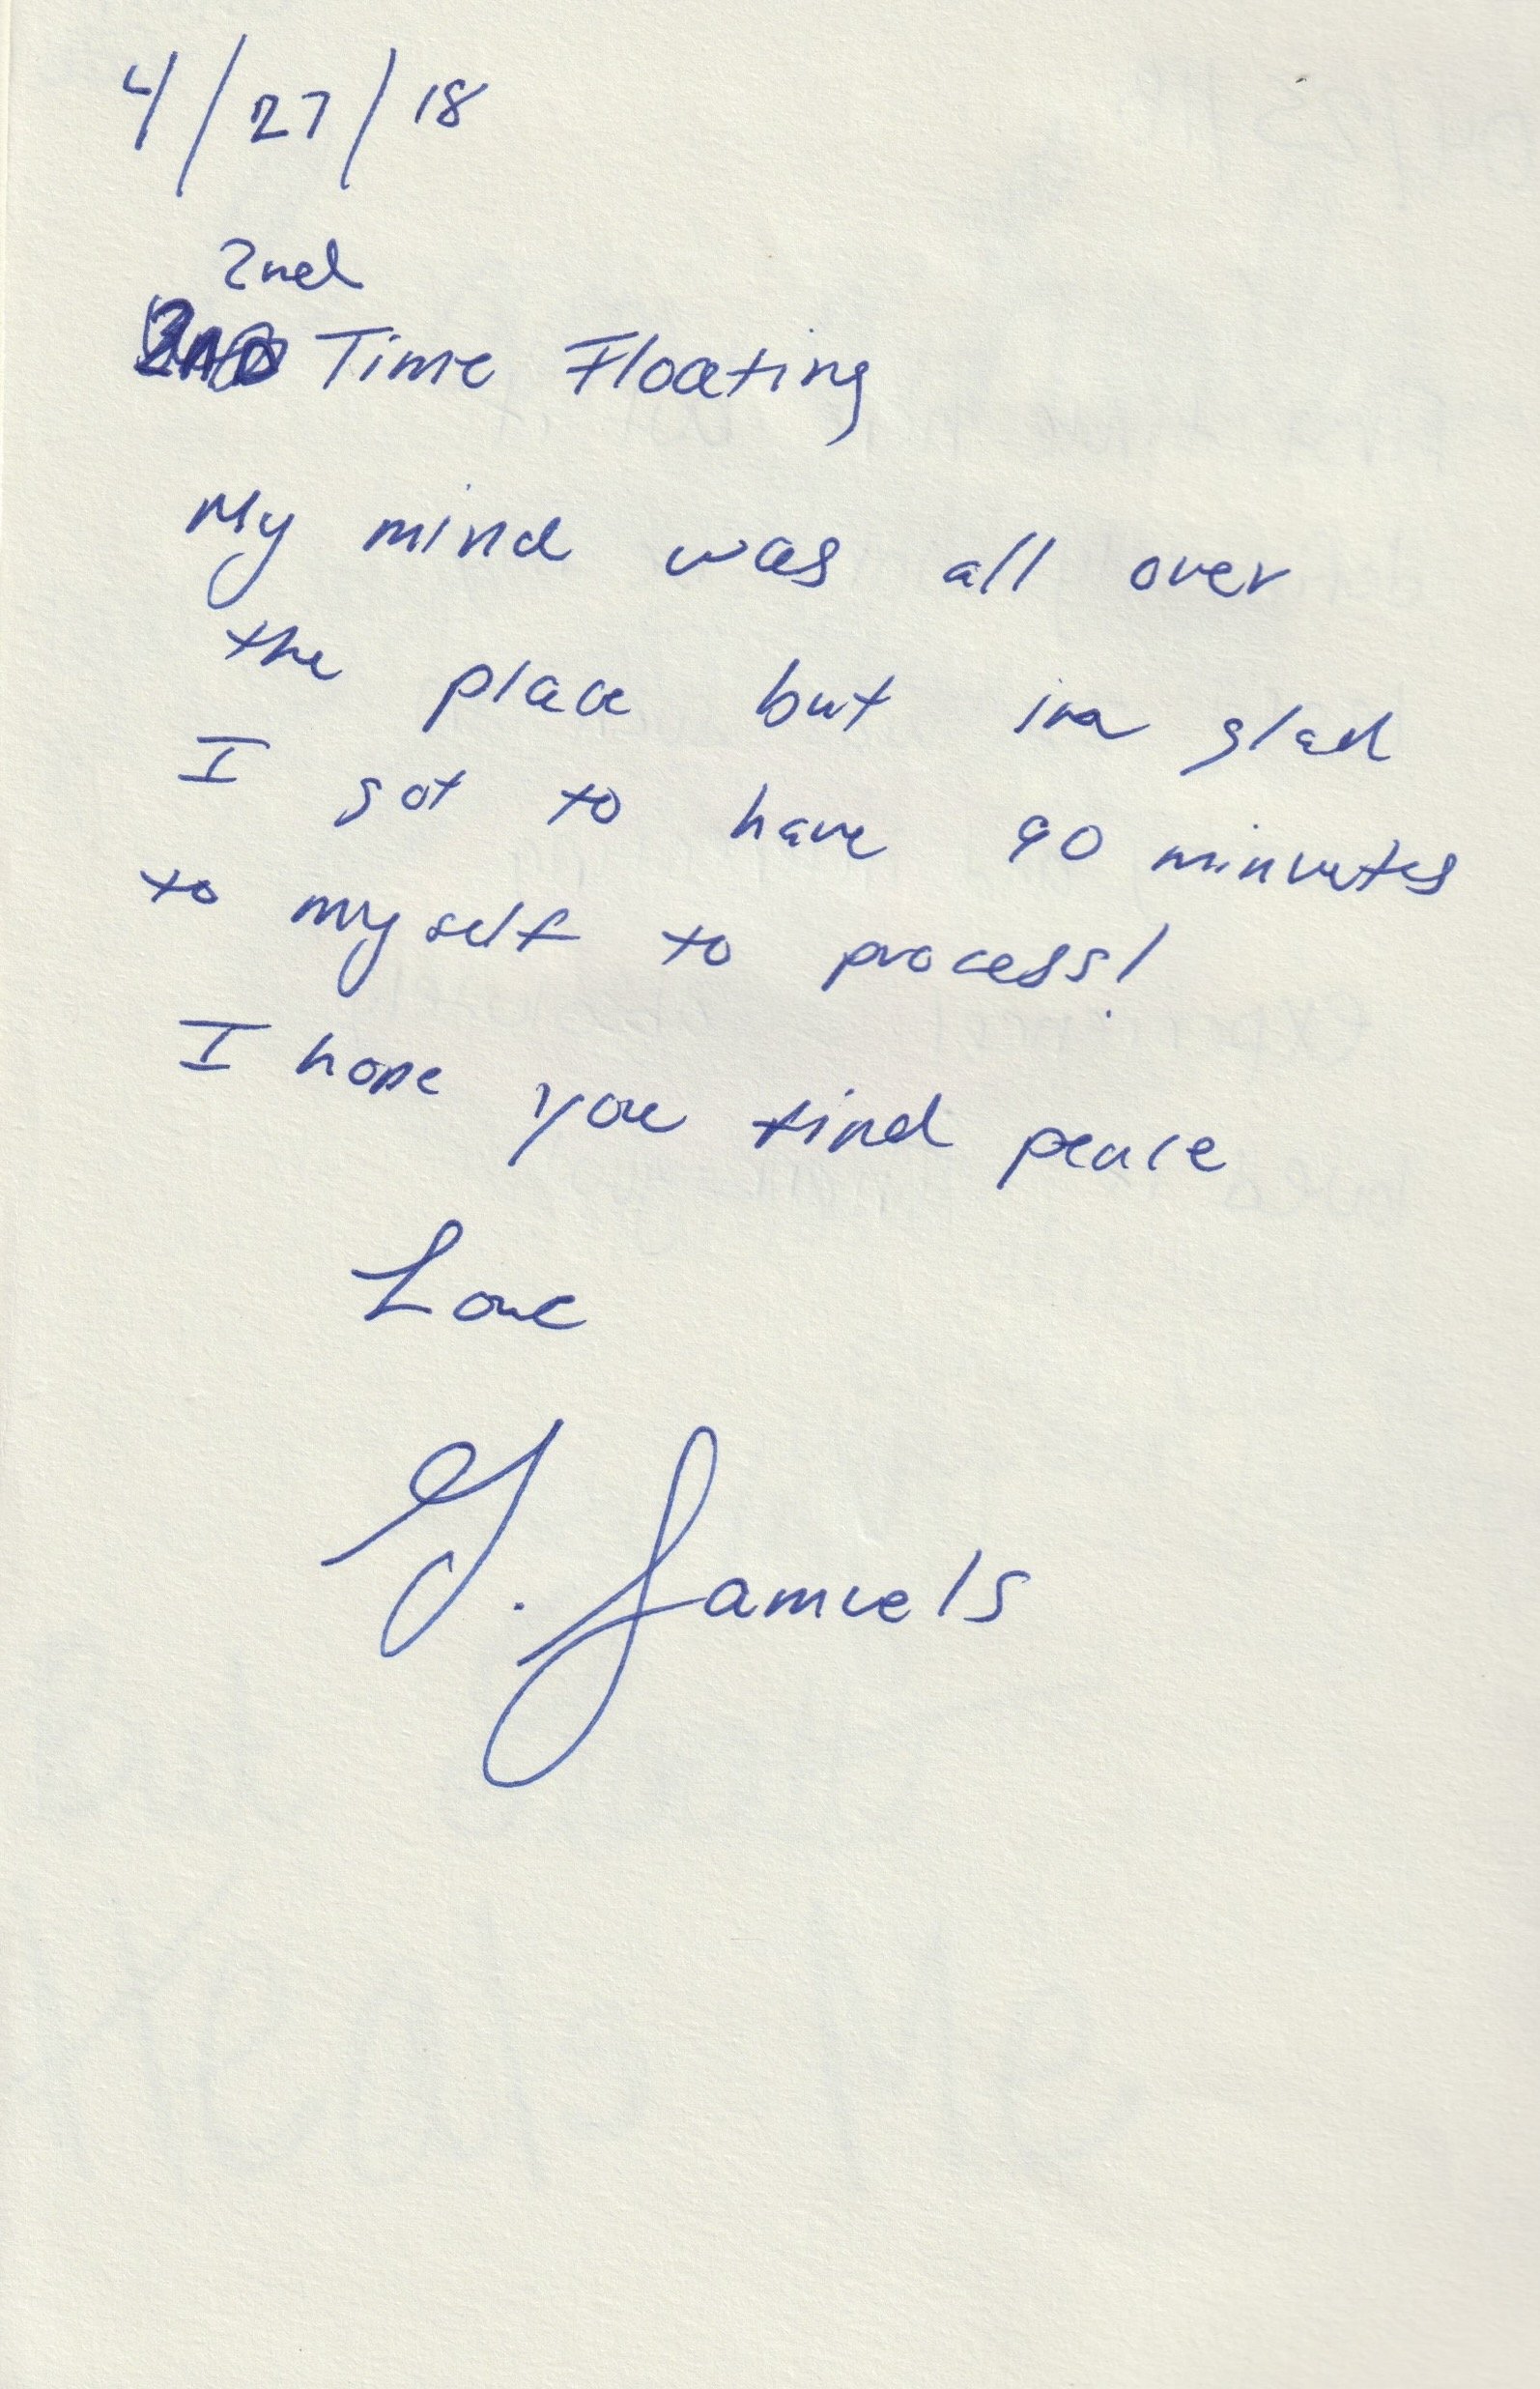 4/27/18
2nd
2nd Time Floating
My mind was all over
the place but im glad
I got to have 90 minutes
to myself to process!
I hope you find peace
Love
G. Samuels